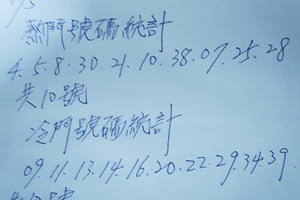 熱門號碼統計
4.5.8.30.21.10.38.07.25.28
共10號
冷門號碼統計
09.11.13.14.16.20.22.29.34.39
共10號